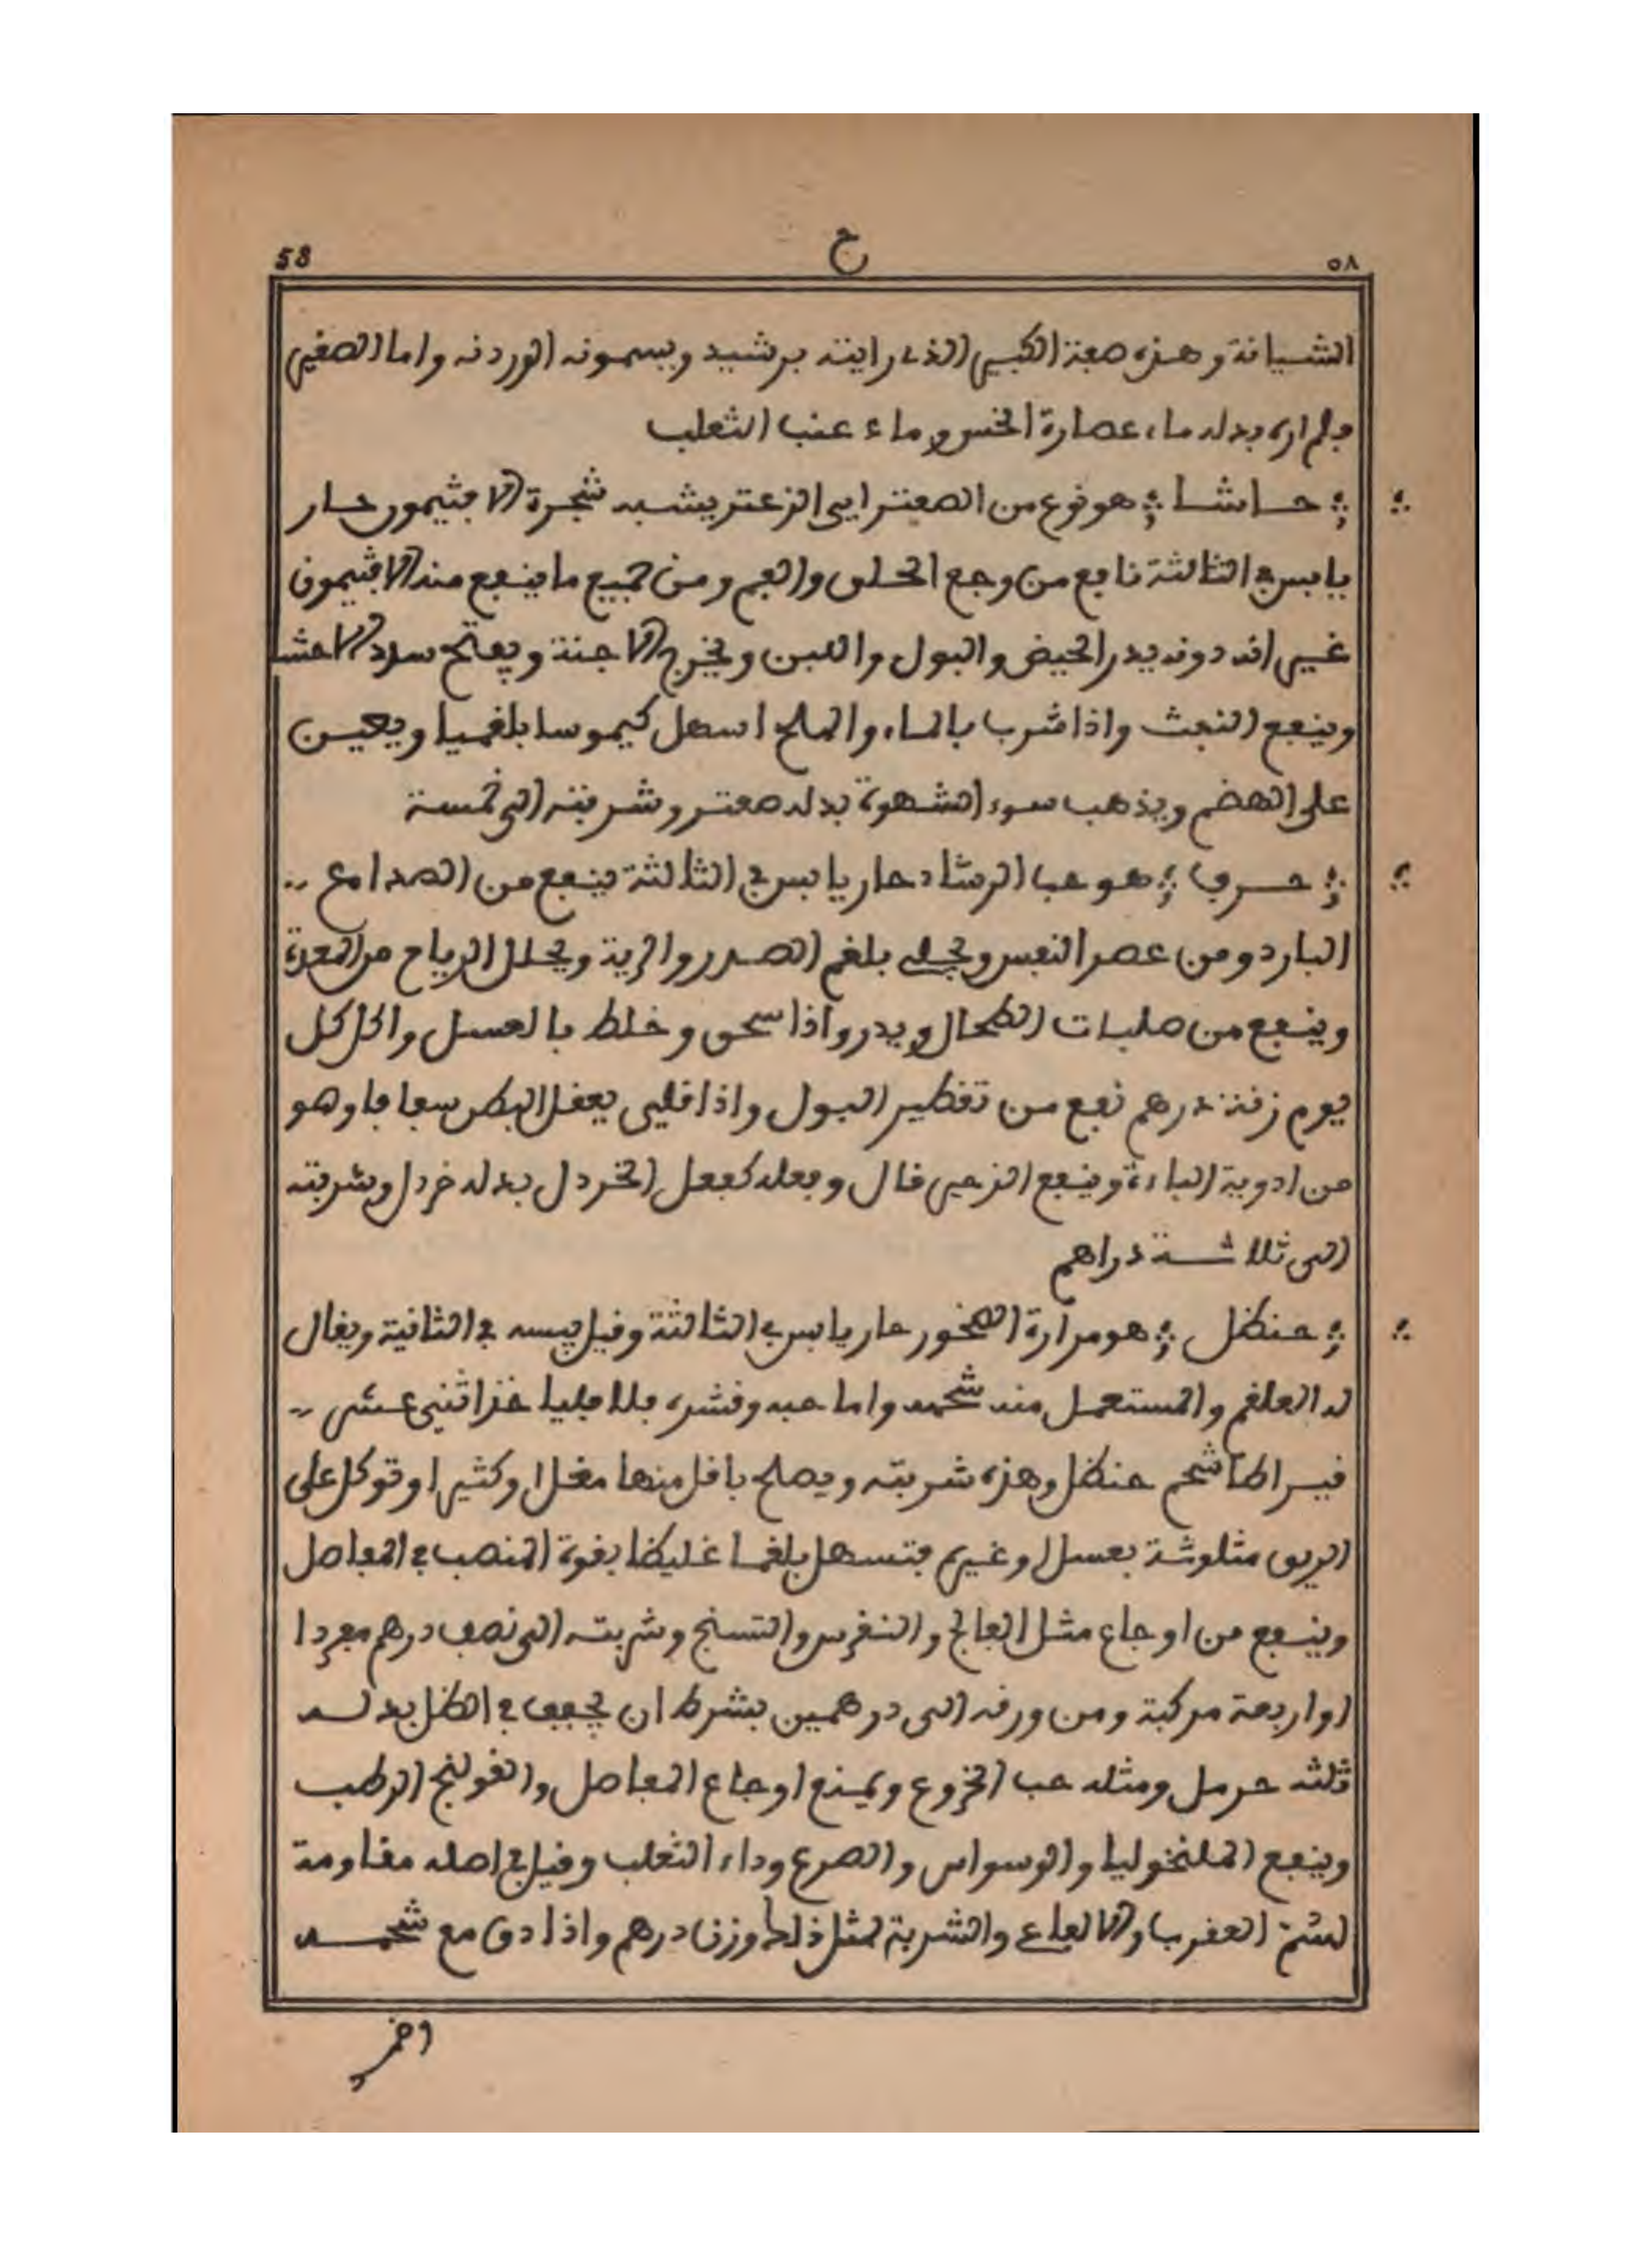 58 ح ٥٨
الشيانة وهذه صفة الكبير الذي رايته برشيد ويسمونه الوردنه واما الصغير
فلم اره بدله ماء عصارة الخس وماء عنب الثعلب
حاشا هو نوع من الصعتر ايى الزعتر يشبه شجرة الافثيمون حار
يابس في الثالثة نافع من وجع الحلق والفم ومن جميع ما ينفع منه الافثيمون
غير انه دونه يدر الحيض والبول واللبن ويخرج الاجنة ويفتح سدد الاحشا
وينفع النفث واذا شرب بالماء والملح اسهل كيموسا بلغميا ويعين
على الهضم ويذهب سوء الشهوة بدله صعتر وشربته الى خمسة
حرف هو حب الرشاد حار يابس في الثالثة ينفع من الصداع
البارد ومن عصر النفس ويجلي بلغم الصدر والرية ويحلل الرياح من المعدة
وينفع من صلبات الطحال ويدر واذا سحق وخلط بالعسل واكل كل
يوم زنة درهم نفع من تقطير البول واذا قلي يعقل البطن سفافا وهو
من ادوية الباءة وينفع الزحير قال وفعله كفعل الخردل بدله خردل وشربته
الى ثلاثة دراهم
حنظل هو مرارة الصخور حار يابس في الثالثة وقيل يبسه في الثانية ويقال
له العلقم والمستعمل منه شحمه واما حبه وقشره فلا فليا خذ اثنى عشر
قيراطا شحم حنظل وهذه شربته ويصلح باقل منها مقلا او كثيرا وتوكل على
الريق مثلوثة بعسل او غيره فتسهل بلغما غليظا بقوة المنصب في المفاصل
وينفع من اوجاع مثل الفالج والنقرس والتسنج وشربته الى نصف درهم مفردا
او اربعة مركبة ومن ورقه الى درهمين بشرط ان يجفف في الظل بدله
ثلثه حرمل ومثله حب الخروع ويمنع اوجاع المفاصل والقولنج الرطب
وينفع الملنخوليا والوسواس والصرع وداء الثعلب وقيل في اصله مقاومة
لسم العقرب والافاع والشربة لمثل ذلك وزن درهم واذا دق مع شحمه